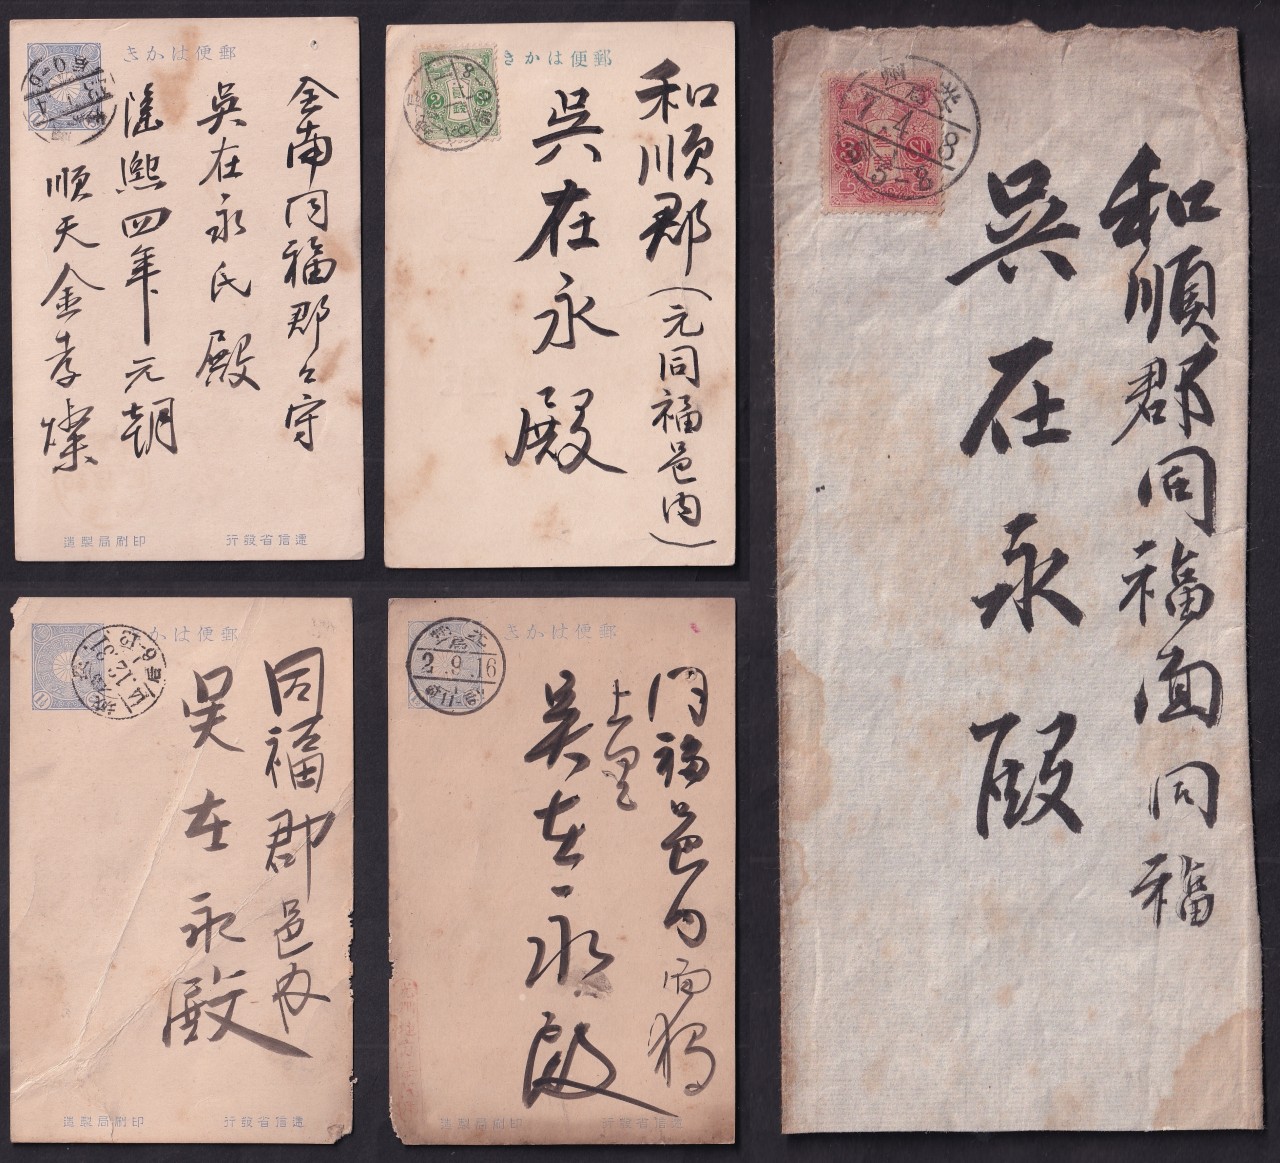 郵便はかき
全南同福郡々守
吳在永氏殿
隆熙四年元朝
順天金孝燦
逓信省發行
印刷局製造
郵便はかき
和順郡(元同福邑内)
吳在永殿
和順郡同福面同福
吳在永殿
光州
7.4.8
郵便はかき
同福郡邑内
吳在永殿
逓信省發行
印刷局製造
郵便はかき
同福邑内面
上里
吳在永殿
2.9.16
逓信省發行
印刷局製造